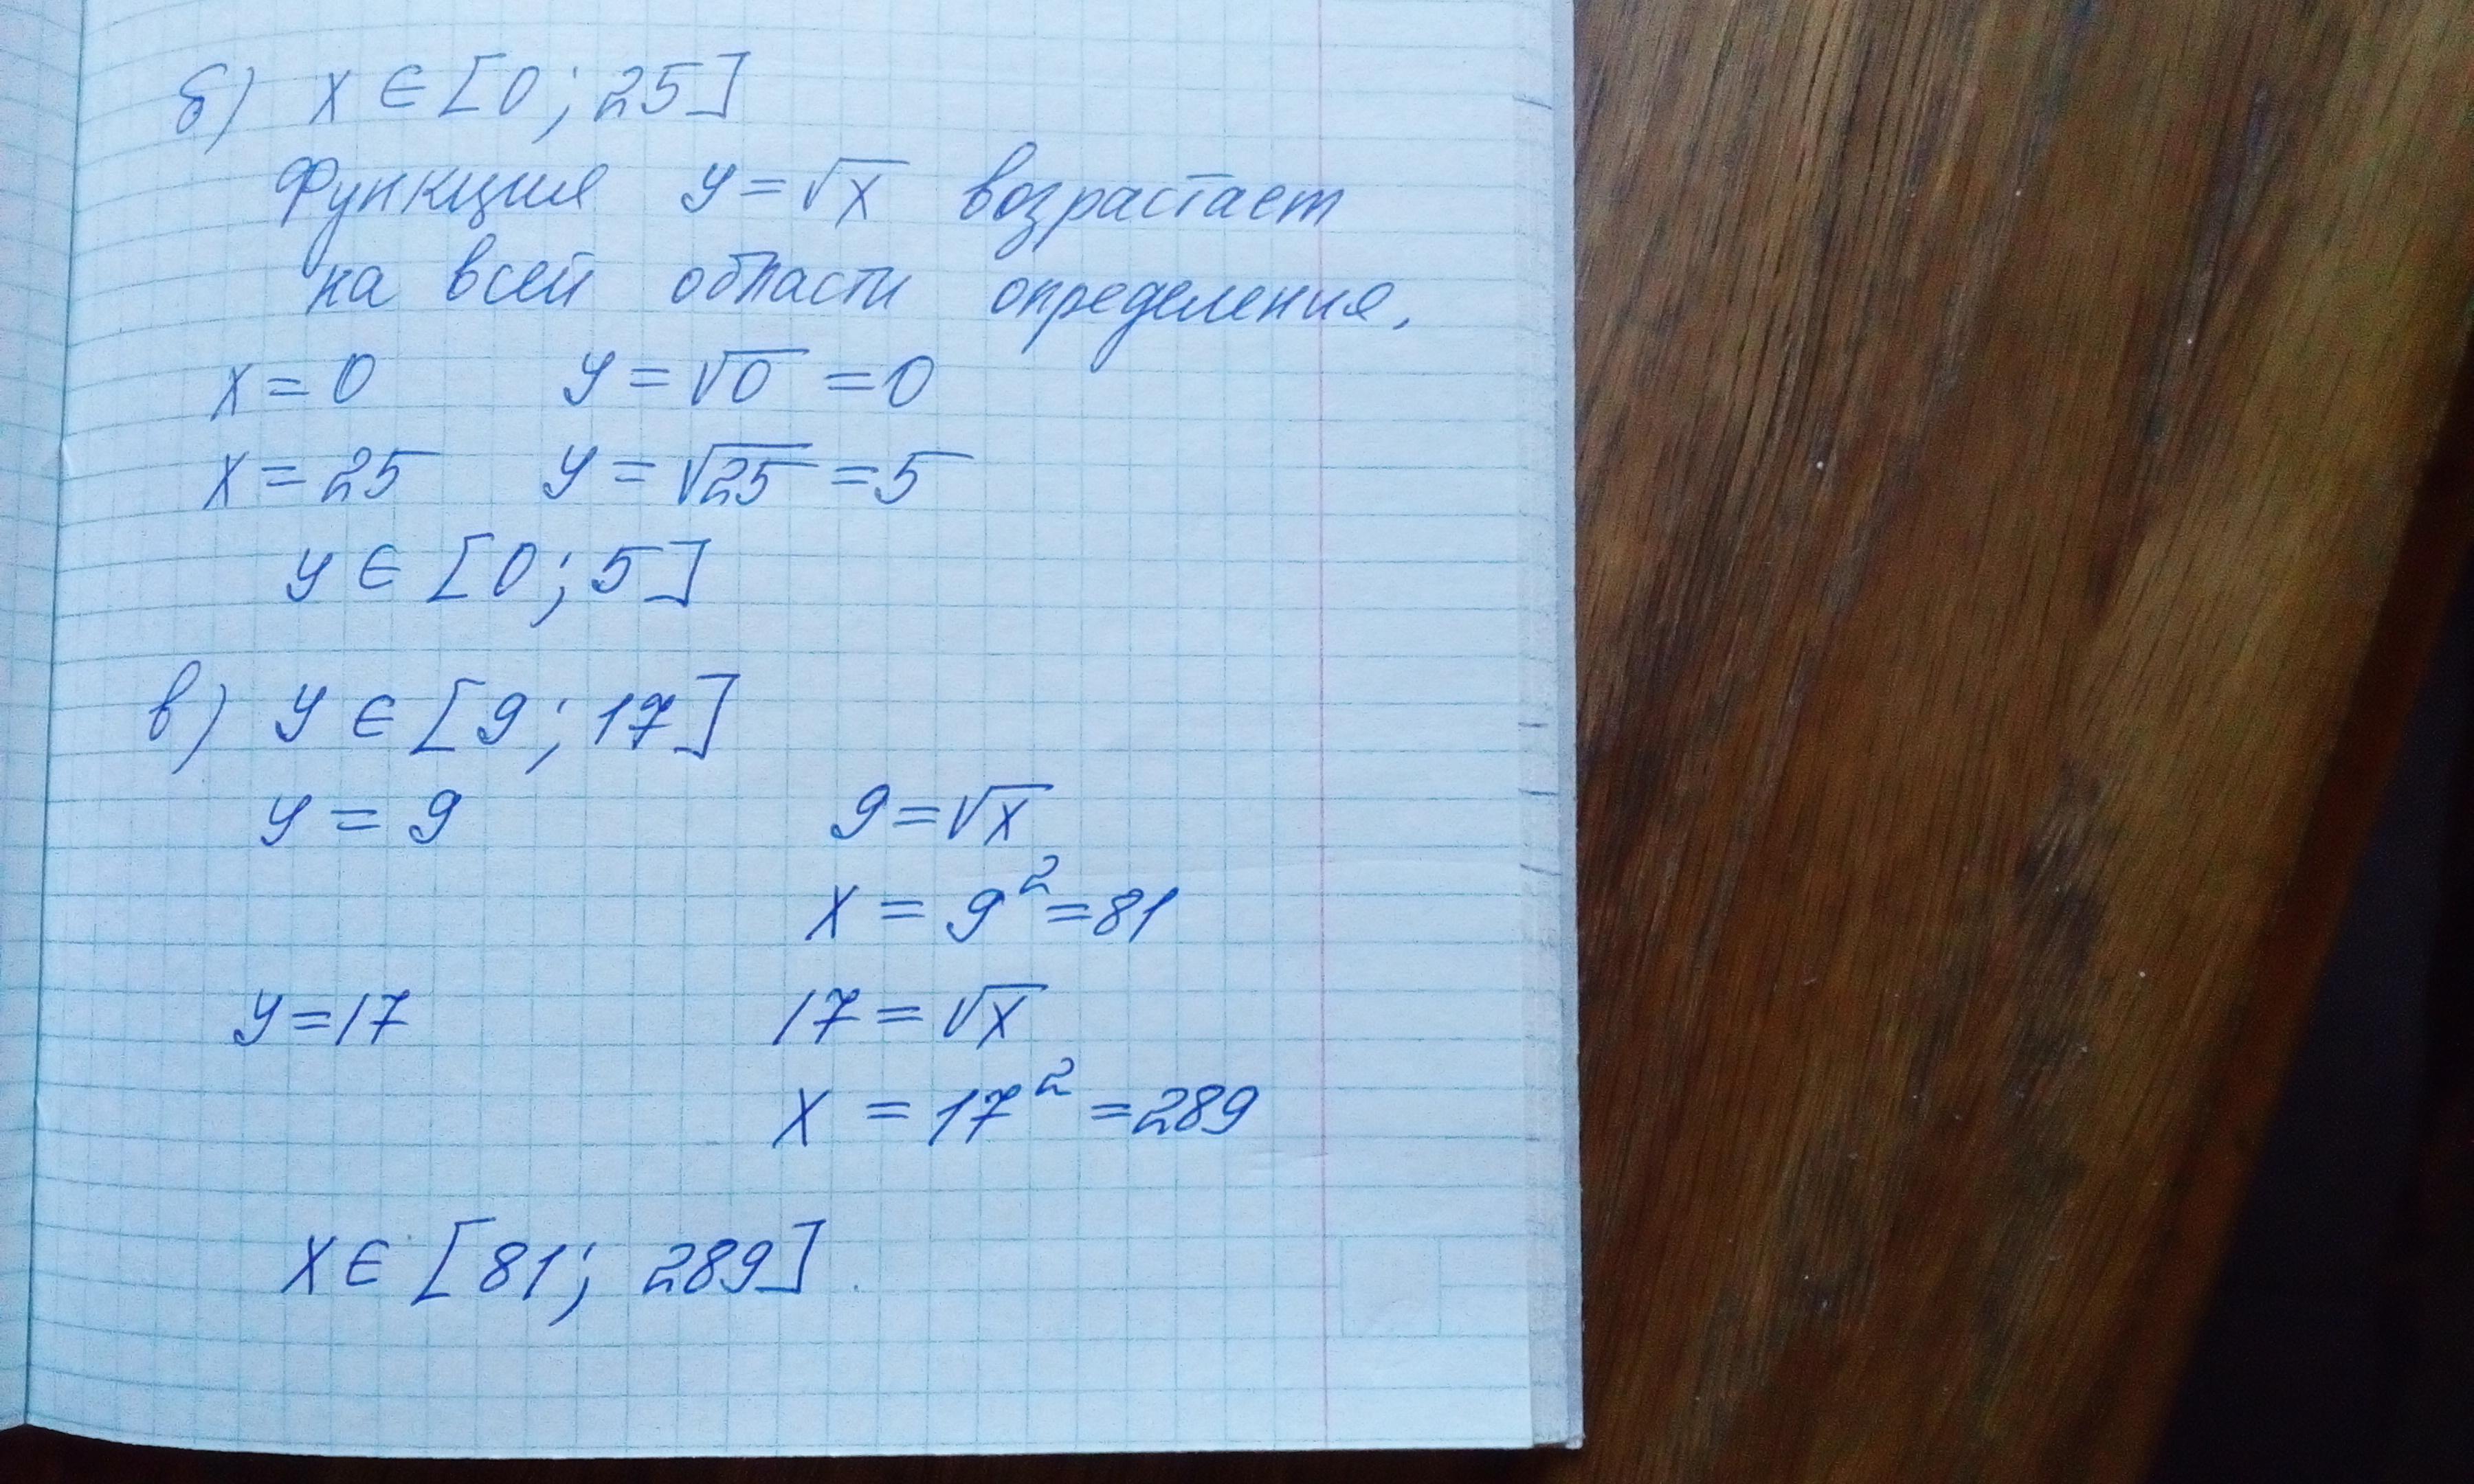 б) x ∈ [0; 25]
Функция y = √x возрастает
на всей области определения.
x = 0 y = √0 = 0
x = 25 y = √25 = 5
y ∈ [0; 5]
в) y ∈ [9; 17]
y = 9 9 = √x
x = 9² = 81
y = 17 17 = √x
x = 17² = 289
x ∈ [81; 289].